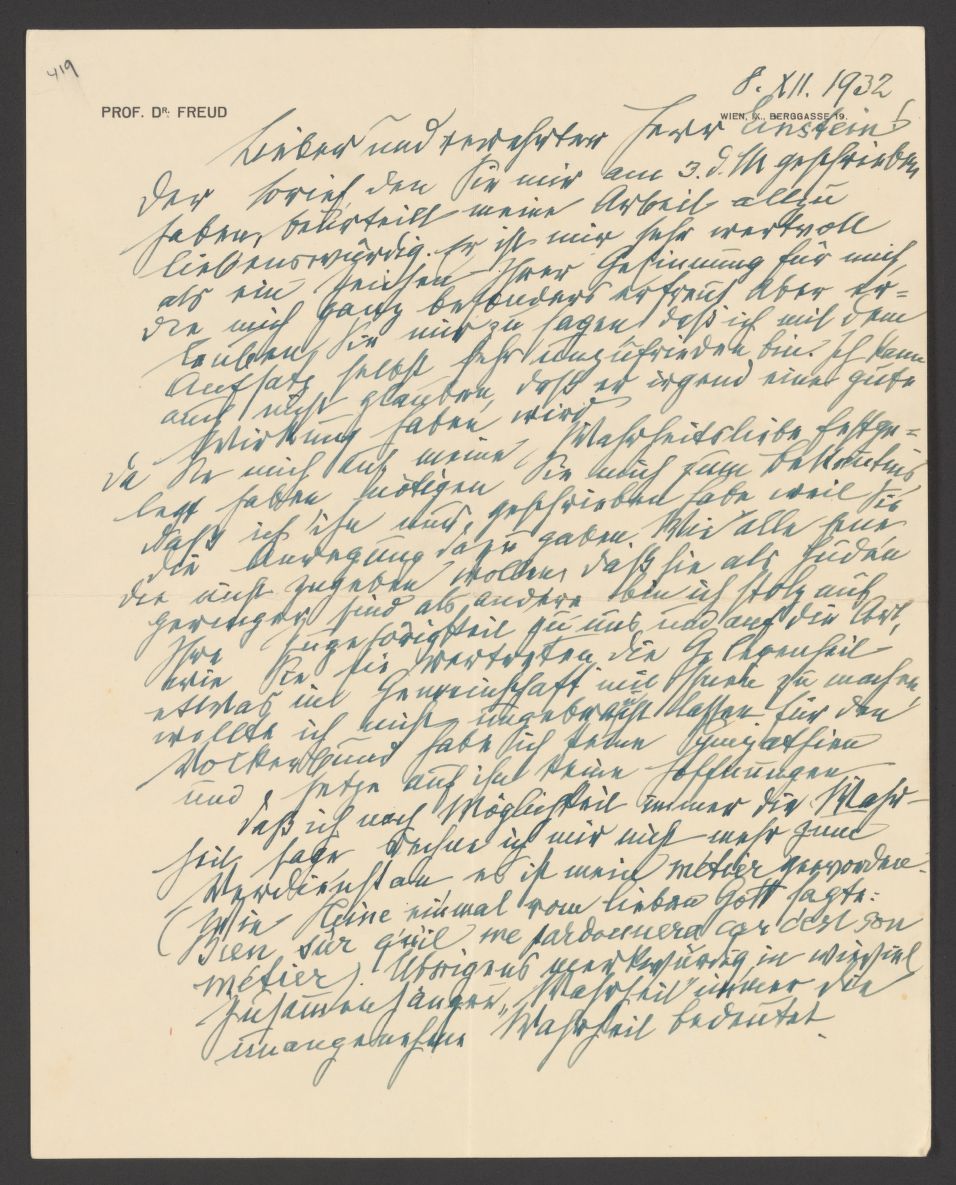 419
8. XII. 1932
PROF. DR. FREUD
WIEN, IX., BERGGASSE 19.
Lieber und verehrter Herr Einstein!
Der Brief, den Sie mir am 3. d. M geschrieben
haben, beurteilt meine Arbeit allzu
liebenswürdig. Er ist mir sehr wertvoll
als ein Zeichen Ihrer Gesinnung für mich,
die mich ganz besonders erfreut Aber er=
lauben Sie mir zu sagen daß ich mit dem
Aufsatz selbst sehr unzufrieden bin. Ich kann
auch nicht glauben, daß er irgend eine gute
Wirkung haben wird
Da Sie mich auf meine Wahrheitsliebe festge=
legt haben nötigen Sie mich zum Bekenntnis,
daß ich ihn nur geschrieben habe weil Sie
die Anregung dazu gaben. Wie alle jene
die nicht zugeben wollen, daß sie als Juden
geringer sind als andere bin ich stolz auf
Ihre Zugehörigkeit zu uns und auf die Art,
wie Sie sie vertreten die Gelegenheit
etwas in Gemeinschaft mit Ihnen zu machen,
wollte ich nicht ungebraucht lassen. Für den
Völkerbund habe ich keine Sympathien
und setze auf ihn keine Hoffnungen
Daß ich nach Möglichkeit immer die Wahr-
heit sage rechne ich mir nicht mehr zum
Verdienst an, es ist mein métier geworden.
(Wie Heine einmal vom lieben Gott sagte:
Bien sûr qu'il me pardonnera car c'est son
métier). Übrigens merkwürdig, in wieviel
Zusammenhängen „Wahrheit" immer die
unangenehme Wahrheit bedeutet.